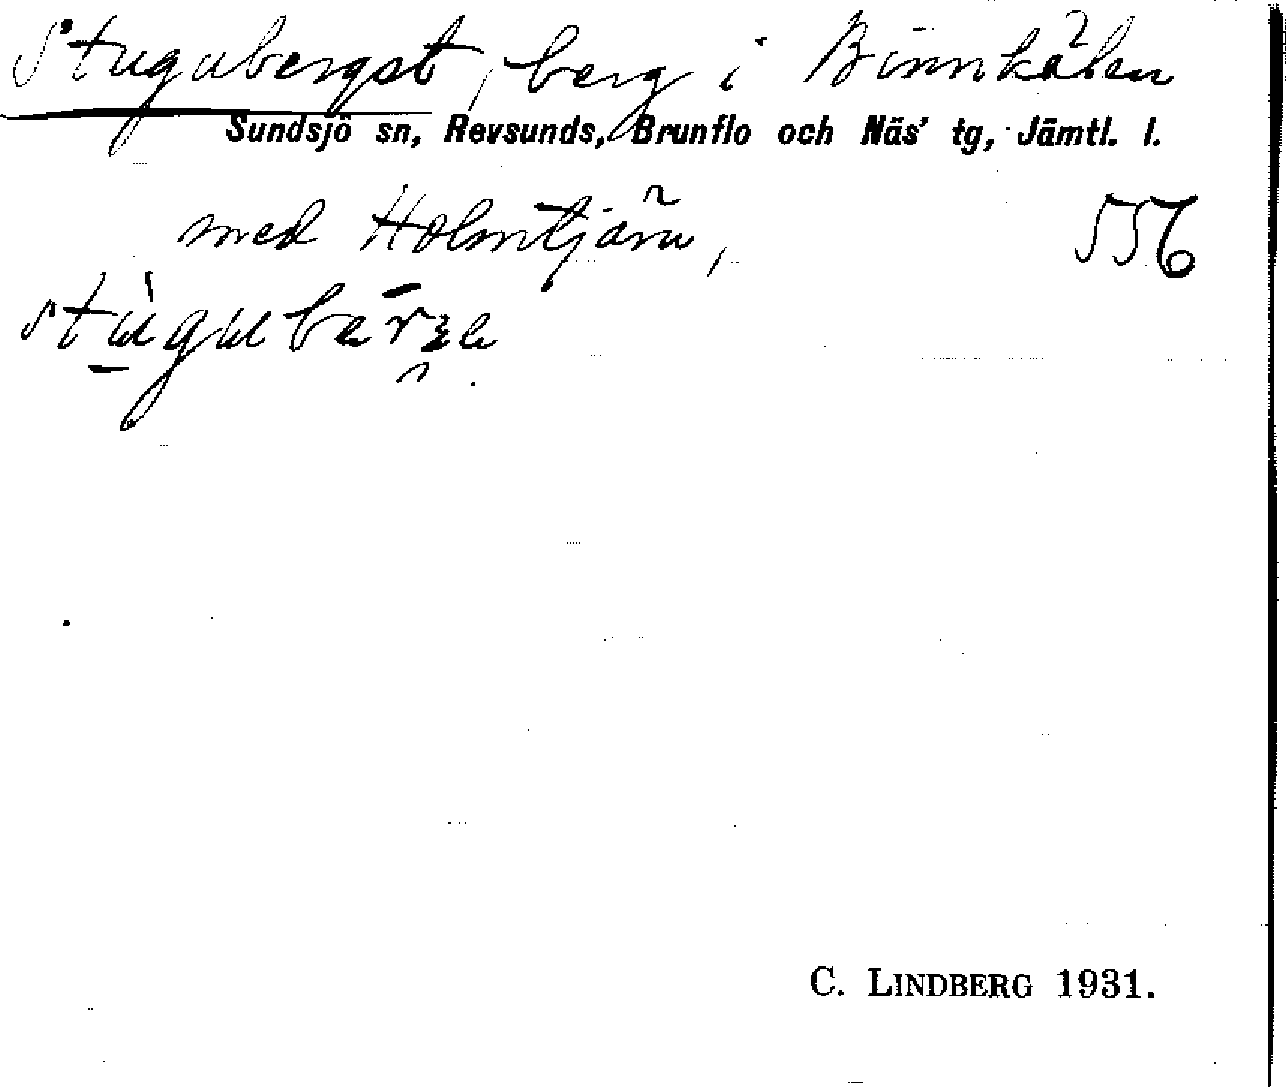 Stugubergst, berg i Binnkålen
Sundsjö sn, Revsunds, Brunflo och Näs' tg, Jämtl. l.
med Holmtjärn, 556
C. LINDBERG 1931.